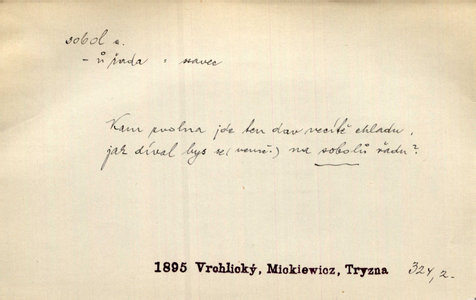 sobol
- ů řada : savec
Kam zvolna jde ten dav necítě chladu,
jak díval bys se (venc.) na sobolů řadu?
1895 Vrchlický, Mickiewicz, Tryzna 324, 2.